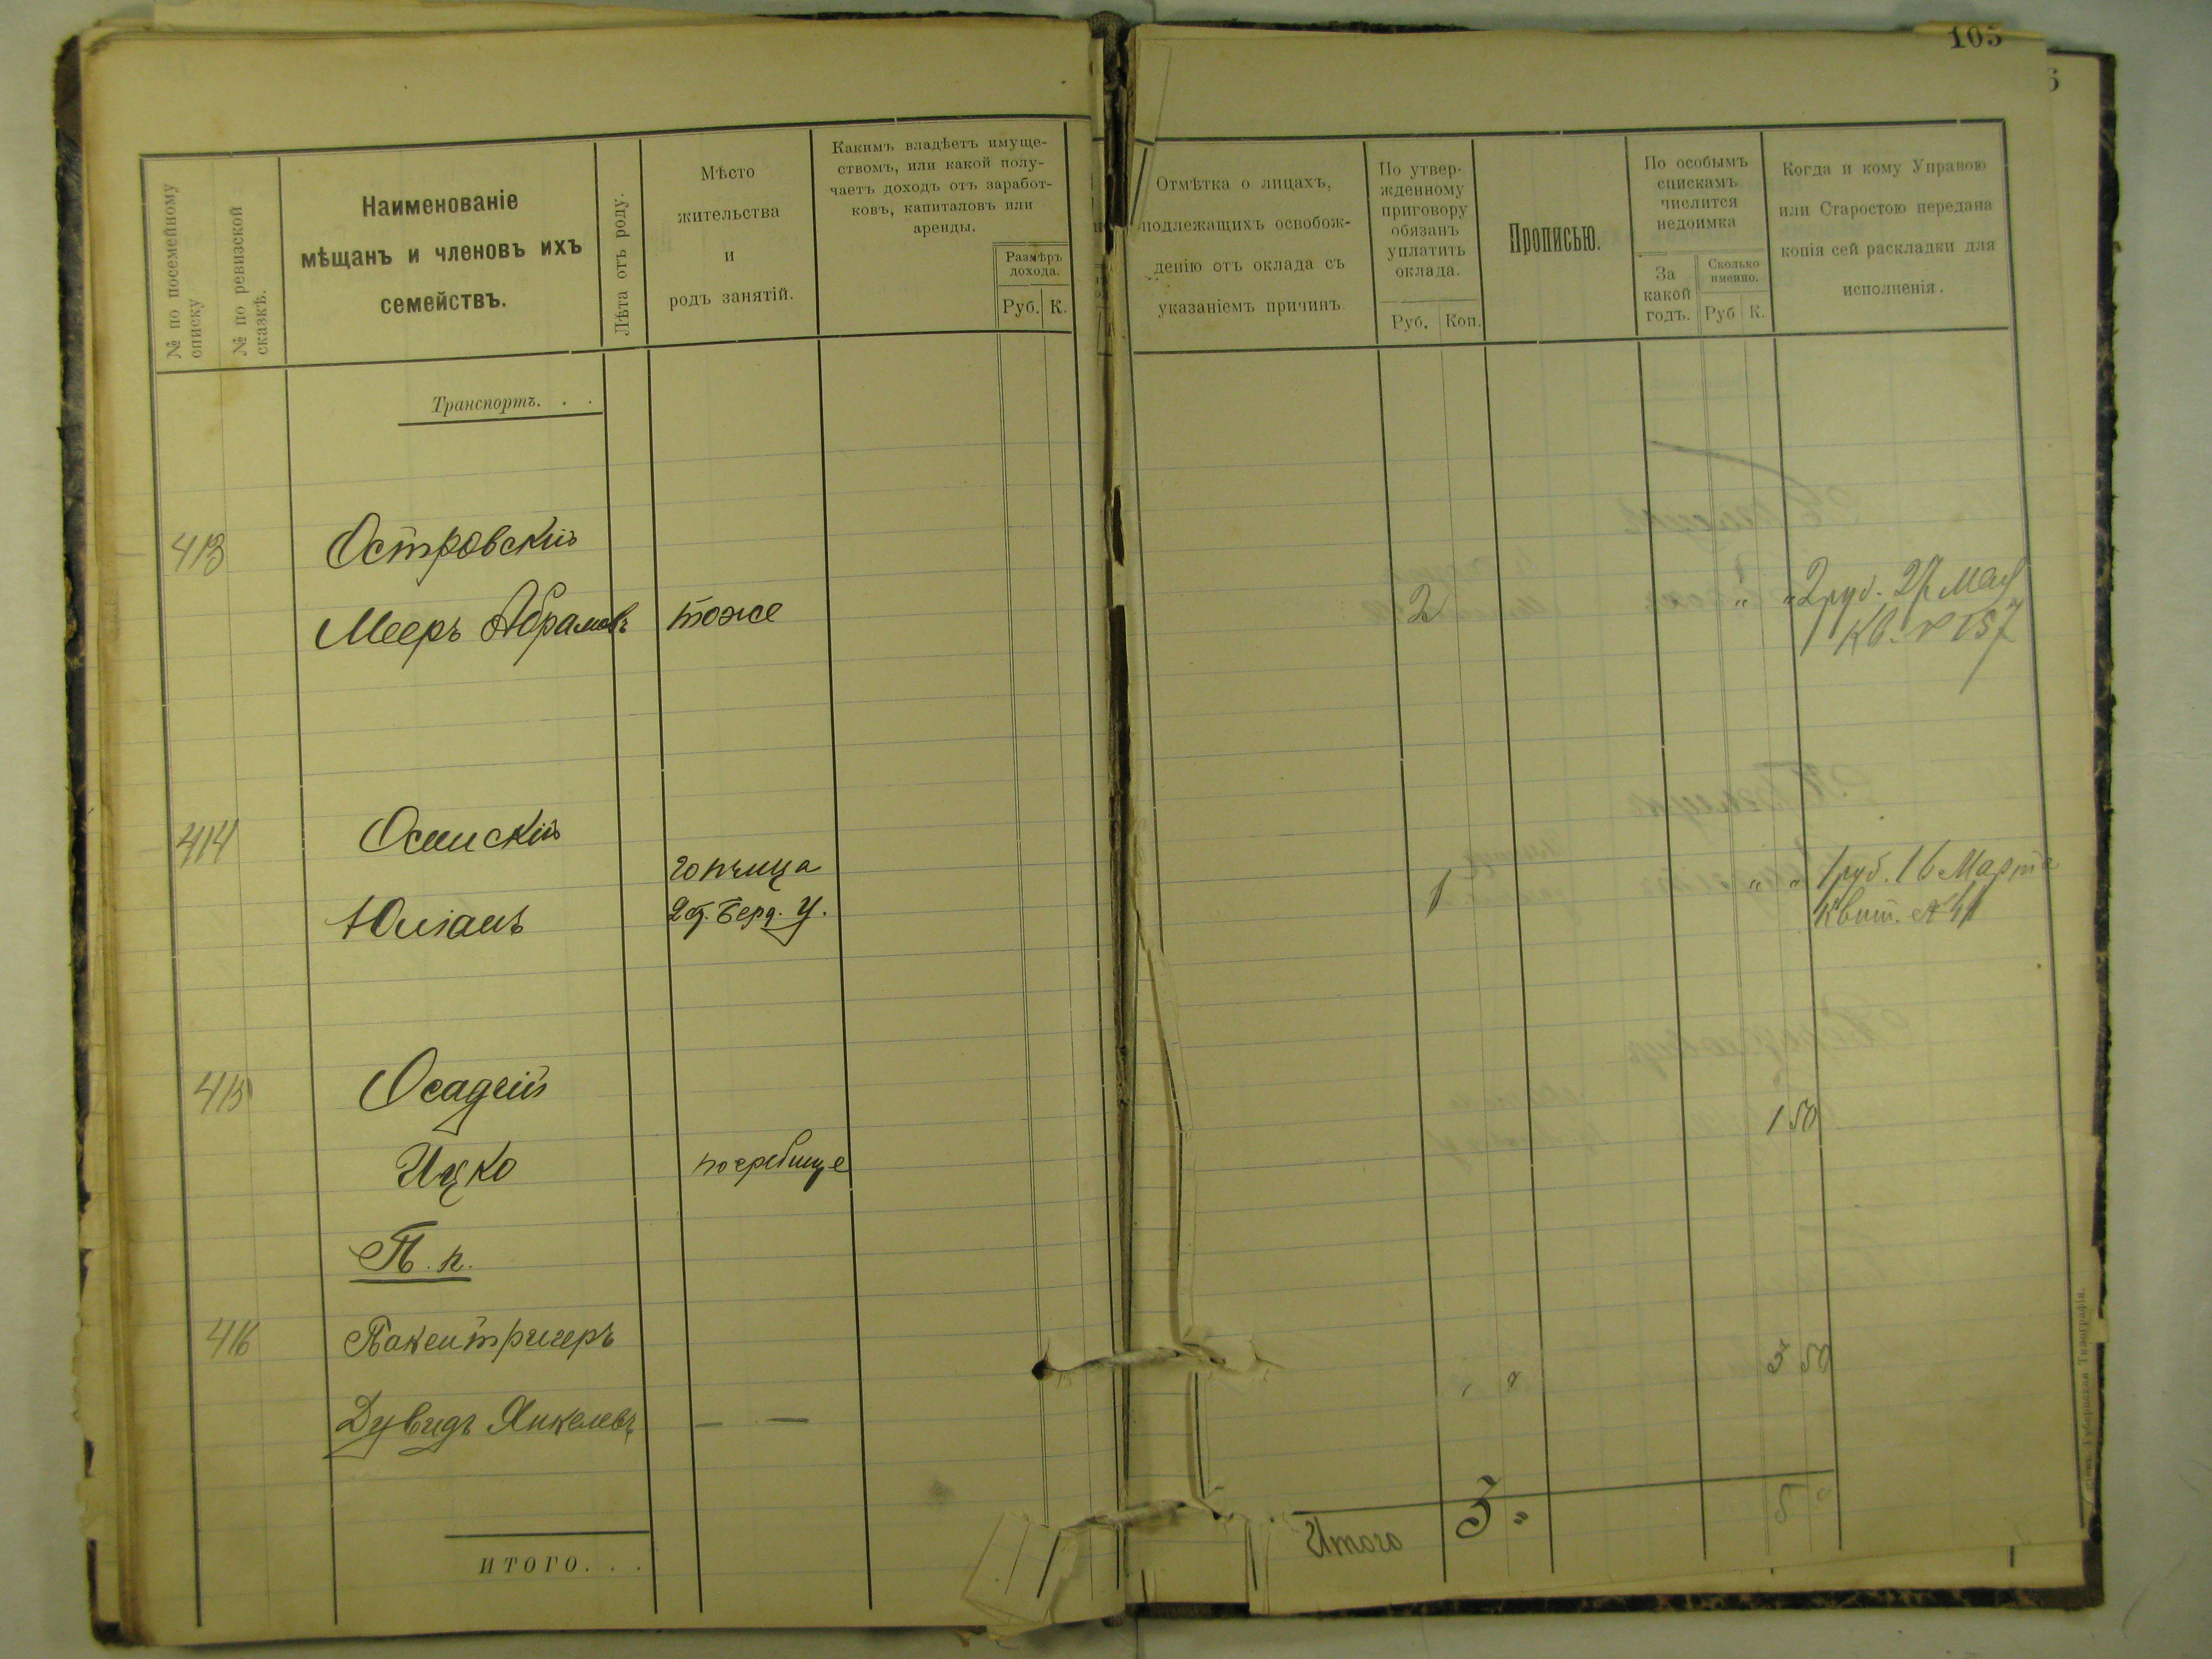 105
№ по посемейному списку
№ по ревизской сказкѣ.
Наименованіе
мѣщанъ и членовъ ихъ
семействъ.
Лѣта отъ роду.
Мѣсто
жительства
и
родъ занятій.
Какимъ владѣетъ имуще-
ствомъ, или какой полу-
чаетъ доходъ отъ заработ-
ковъ, капиталовъ или
аренды.
Размѣръ
дохода.
Руб. К.
Отмѣтка о лицахъ,
подлежащихъ освобож-
денію отъ оклада съ
указаніемъ причинъ
По утвер-
жденному
приговору
обязанъ
уплатить
оклада.
Руб. Коп.
Прописью.
По особымъ
спискамъ
числится
недоимка
За
какой
годъ.
Сколько
именно.
Руб К.
Когда и кому Управою
или Старостою передана
копія сей раскладки для
исполненія.
Транспортъ. . .
413 Островскій
Мееръ Абрамовъ тоже 2 " " 2 руб. 27 Мая
Кв. № 157
414
Юліанъ 2 ст. Берд. У. 1 " " 1 руб. 16 Марта
Квит. № 41
415 Осадчій
1 50
Ицко погребище
П. п.
416 Пакентригеръ
3 50
Дувидъ Янкелевъ — —
Итого 3 " 5 "
ИТОГО. . .
Губернская Типографія.